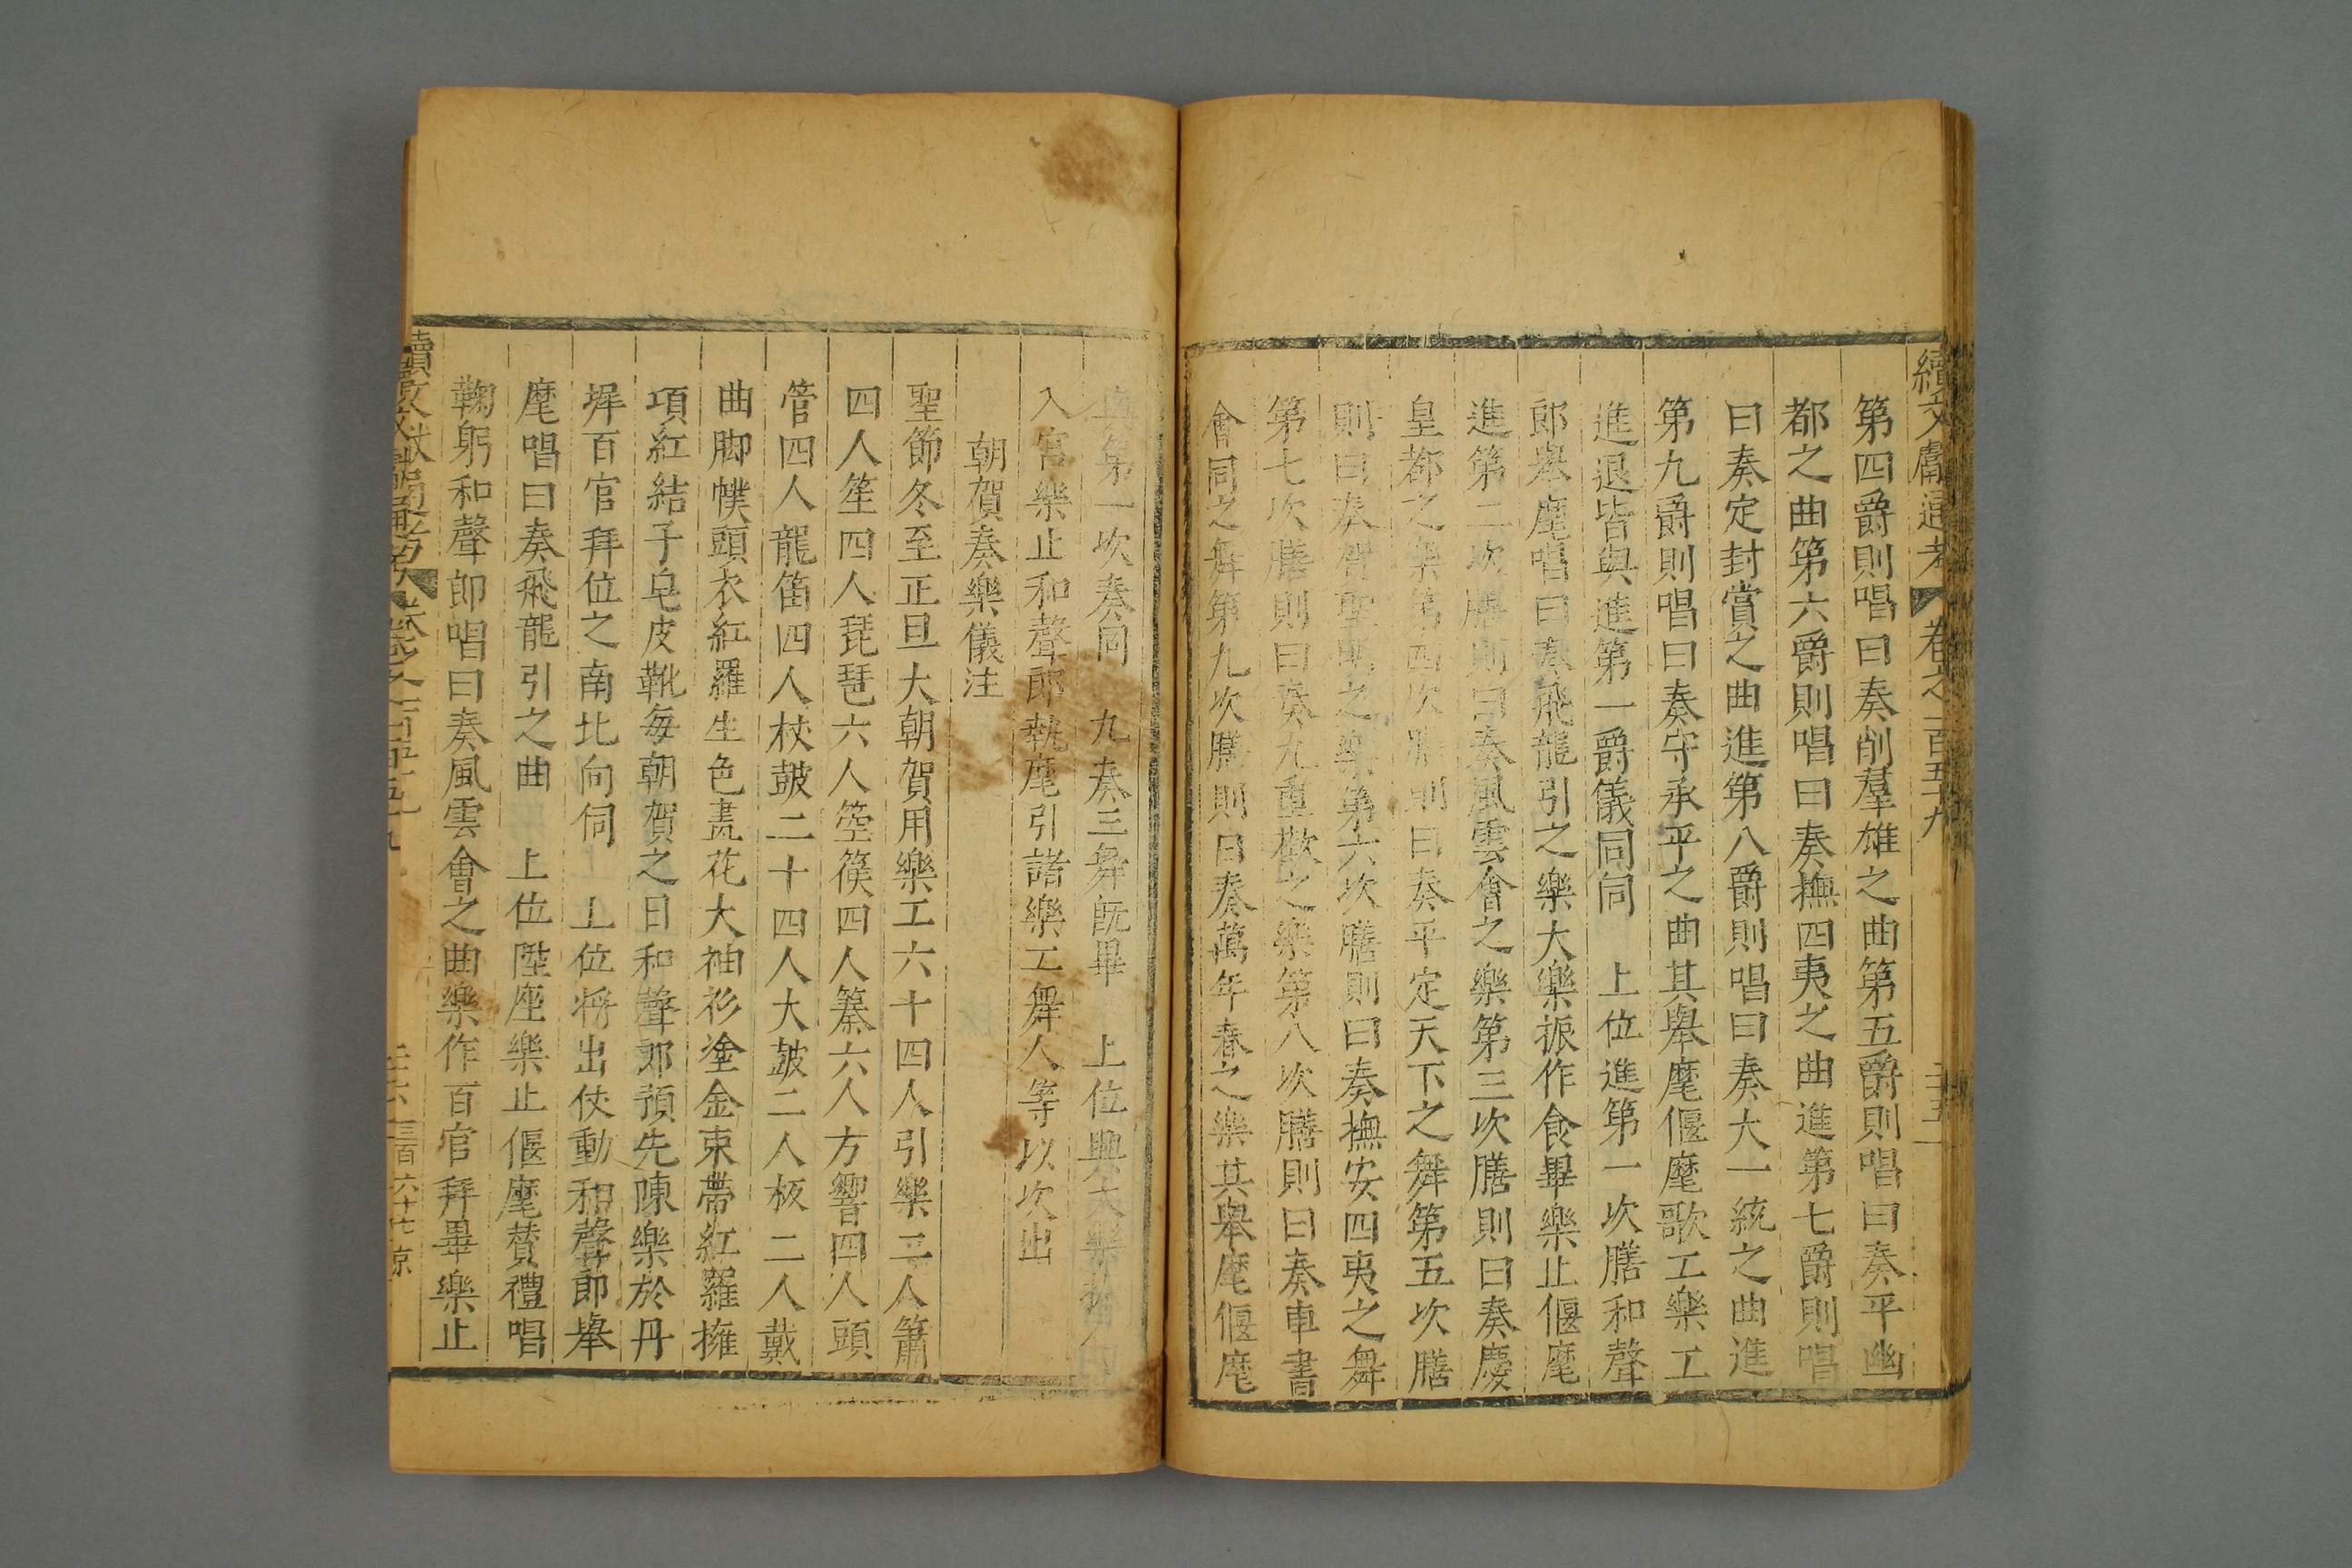 續文獻通考 卷之一百五十九
第四爵則唱曰奏削羣雄之曲第五爵則唱曰奏平幽
都之曲第六爵則唱曰奏撫四夷之曲進第七爵則唱
曰奏定封賞之曲進第八爵則唱曰奏大一統之曲進
第九爵則唱曰奏守承平之曲其舉麾偃麾歌工樂工
進退皆與進第一爵儀同同 上位進第一次膳和聲
郎舉麾唱曰奏飛龍引之樂大樂振作食畢樂止偃麾
進第二次膳則曰奏風雲會之樂第三次膳則曰奏慶
皇都之樂第四次膳則曰奏平定天下之舞第五次膳
則曰奏賀聖明之樂第六次膳則曰奏撫安四夷之舞
第七次膳則曰奏九重歡之樂第八次膳則曰奏車書
會同之舞第九次膳則曰奏萬年春之樂其舉麾偃麾
第一次奏同 九奏三舞既畢 上位興大樂
入宮樂止和聲郎執麾引諸樂工舞人等以次出
朝賀奏樂儀注
聖節冬至正旦大朝賀用樂工六十四人引樂二人簫
四人笙四人琵琶六人箜篌四人𥱧六人方響四人頭
管四人龍笛四人杖鼓二十四人大鼓二人板二人戴
曲脚幞頭衣紅羅生色畫花大袖衫塗金束帶紅羅擁
項紅結子皂皮靴每朝賀之日和聲郎預先陳樂於丹
墀百官拜位之南北向伺 上位將出仗動和聲郎舉
麾唱曰奏飛龍引之曲 上位陞座樂止偃麾賛禮唱
鞠躬和聲郎唱曰奏風雲會之曲樂作百官拜畢樂止
續文獻通考 卷之一百五十九